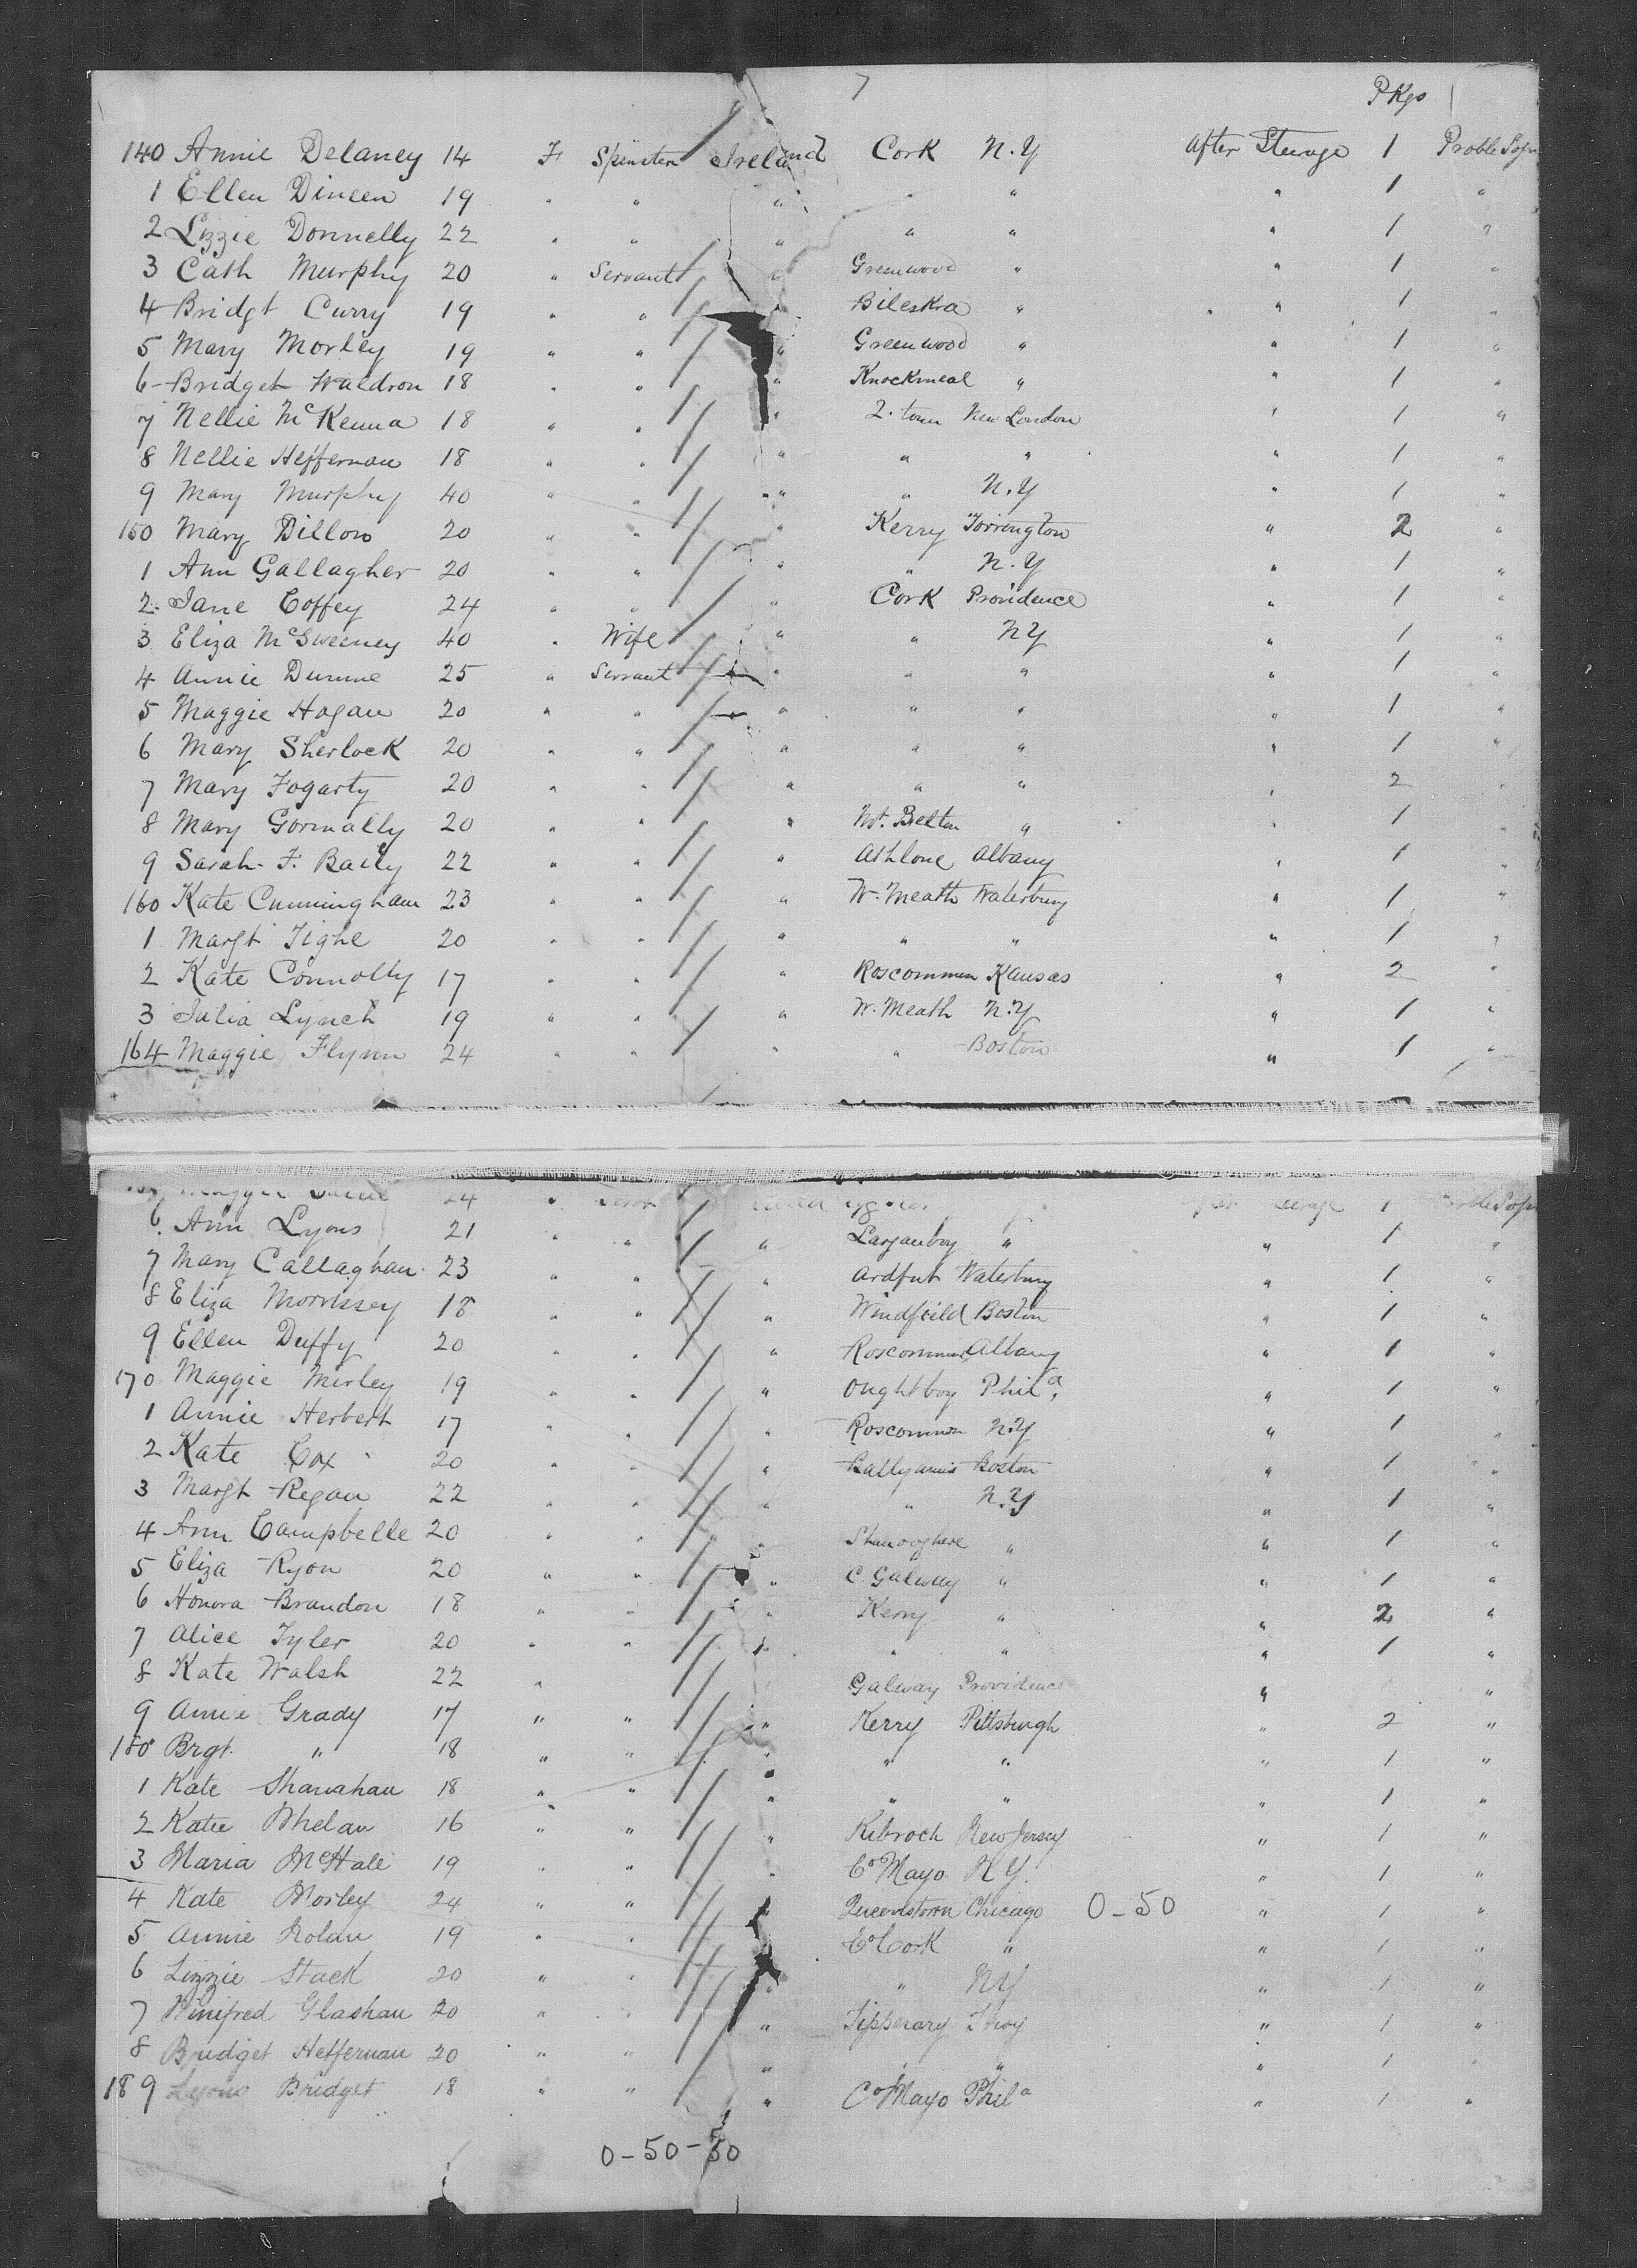 7
Pkgs
140 Annie Delaney 14 F Spinster Ireland Cork N.Y After Steerage 1 Proble Sojn
1 Ellen Dineen 19 " " " " " " 1 "
2 Lizzie Donnelly 22 " " " " " " 1 "
3 Cath Murphy 20 " Servant " Greenwood " " 1 "
4 Bridgt Curry 19 " " " Bileskra " " 1 "
5 Mary Morley 19 " " " Greenwood " " 1 "
6 Bridget Waldron 18 " " " Knockmeal " " 1 "
7 Nellie McKenna 18 " " " Q. town New London " 1 "
8 Nellie Heffernan 18 " " " " " " 1 "
9 Mary Murphy 40 " " " " N.Y " 1 "
150 Mary Dillon 20 " " " Kerry Torrington " 2 "
1 Ann Gallagher 20 " " " " N.Y " 1 "
2 Jane Coffey 24 " " " Cork Providence " 1 "
3 Eliza McSweeney 40 " Wife " " NY " 1 "
4 Annie Dunne 25 " Servant " " " " 1 "
5 Maggie Hogan 20 " " " " " " 1 "
6 Mary Sherlock 20 " " " " " " 1 "
7 Mary Fogarty 20 " " " " " " 2 "
8 Mary Gormally 20 " " " Mt. Belton " " 1 "
9 Sarah F. Baily 22 " " " Athlone Albany " 1 "
160 Kate Cunningham 23 " " " W. Meath Waterbury " 1 "
1 Margt Tighe 20 " " " " " " 1 "
2 Kate Connolly 17 " " " Roscommon Kansas " 2 "
3 Julia Lynch 19 " " " W. Meath N.Y " 1 "
164 Maggie Flynn 24 " " " " Boston " 1 "
Maggie 24 " 1
6 Ann Lyons 21 " " " " " 1 "
7 Mary Callaghan 23 " " " Waterbury " 1 "
8 Eliza Morrissey 18 " " " Windfeild Boston " 1 "
9 Ellen Duffy 20 " " " Roscommon Albany " 1 "
170 Maggie Mirley 19 " " " Oughtboy Phila " 1 "
1 Annie Herbert 17 " " " Roscommon N.Y " 1 "
2 Kate Cox 20 " " " Boston " 1 "
3 Margt Regan 22 " " " " N.Y " 1 "
4 Ann Campbelle 20 " " " " " 1 "
5 Eliza Ryon 20 " " " C. Galway " " 1 "
6 Honora Brandon 18 " " " Kerry " " 2 "
7 Alice Tyler 20 " " " " " " 1 "
8 Kate Walsh 22 " Galway Providence " "
9 Annie Grady 17 " " " Kerry Pittsburgh " 2 "
180 Brgt. " 18 " " " " " " 1 "
1 Kate Shanahan 18 " " " " " " 1 "
2 Katie Whelan 16 " " " Kibroch New Jersey " 1 "
3 Maria McHale 19 " " " Co Mayo N.Y. " 1 "
4 Kate Morley 24 " " " Queenstown Chicago 0-50 " 1 "
5 Annie Nolan 19 " " " Co Cork " " 1 "
6 Lizzie Stack 20 " " " " NY " 1 "
7 Winifred Glashan 20 " " " Tipperary Troy " 1 "
8 Bridget Heffernan 20 " " " " " " 1 "
189 Lyons Bridget 18 " " " Co Mayo Phila " 1 "
0-50-50